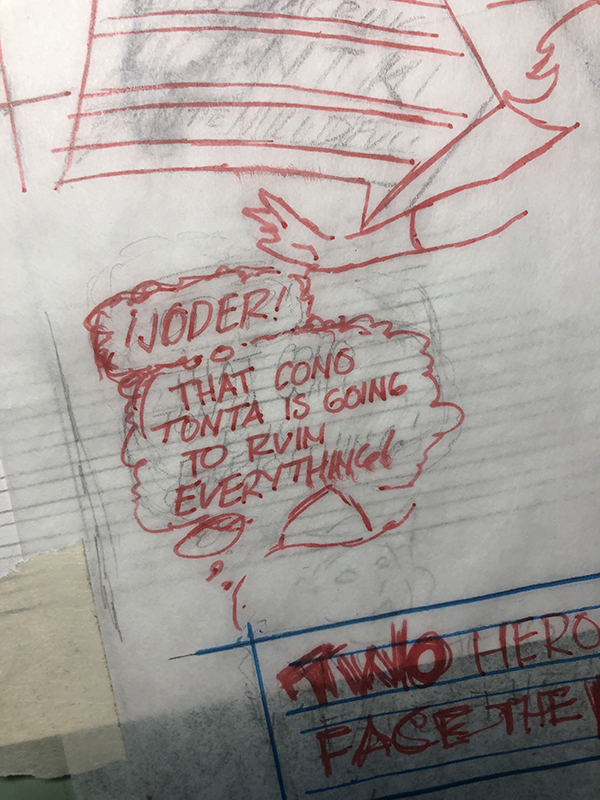 ¡JODER!
THAT CONO
TONTA IS GOING
TO RUIN
EVERYTHING!
TWO HERO
FACE THE